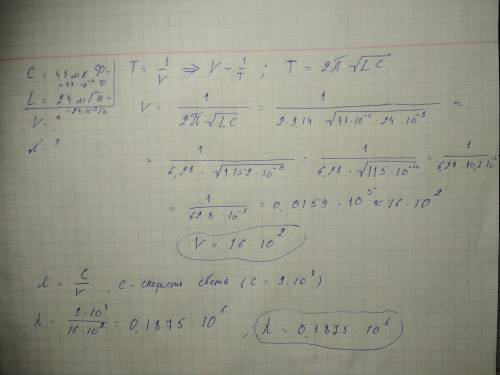 C = 48 мк Ф = 48·10⁻⁶ Ф
L = 24 мГн = 24·10⁻³ Гн
V - ?
λ - ?
T = 1/V ⇒ V = 1/T ; T = 2П √LC
V = 1/(2П √LC) = 1/(2·3,14 · √(48·10⁻⁶ · 24·10⁻³)) =
= 1/(6,28 · √(1152·10⁻⁹)) = 1/(6,28 · √(115·10⁻¹⁰)) = 1/(6,28 · 10,7·10⁻⁵)
= 1/(62,8 · 10⁻⁵) = 0,0159 · 10⁵ ≈ 16 · 10²
V = 16 · 10²
λ = C/V , С - скорость света ( С = 3·10⁸ )
λ = 3·10⁸/(16·10²) = 0,1875 · 10⁶ , λ = 0,1875 · 10⁶